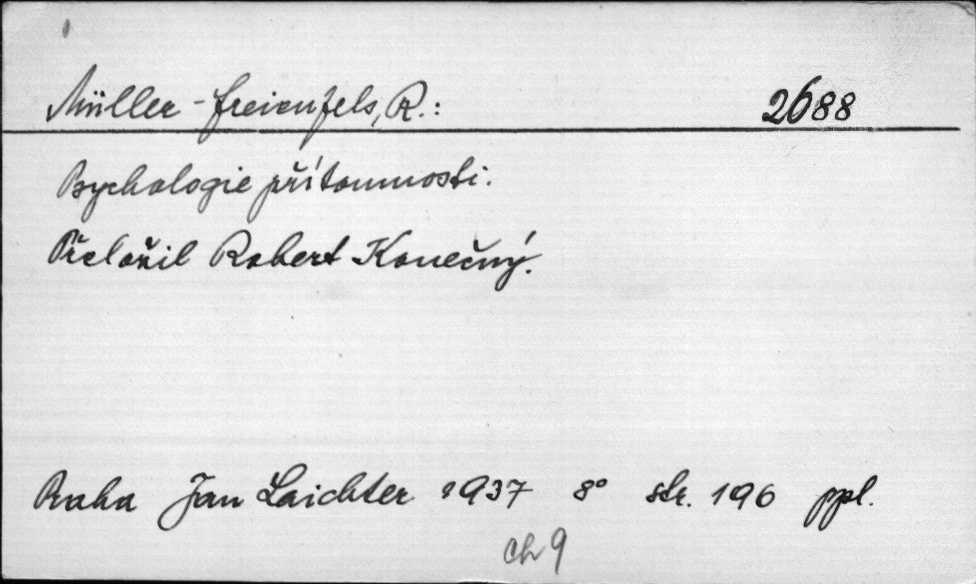 Müller-Freienfels, R.: 2688
Psychologie přítomnosti.
Přeložil Robert Konečný.
Praha Jan Laichter 1937 8° str. 196 ppl.
ch 9